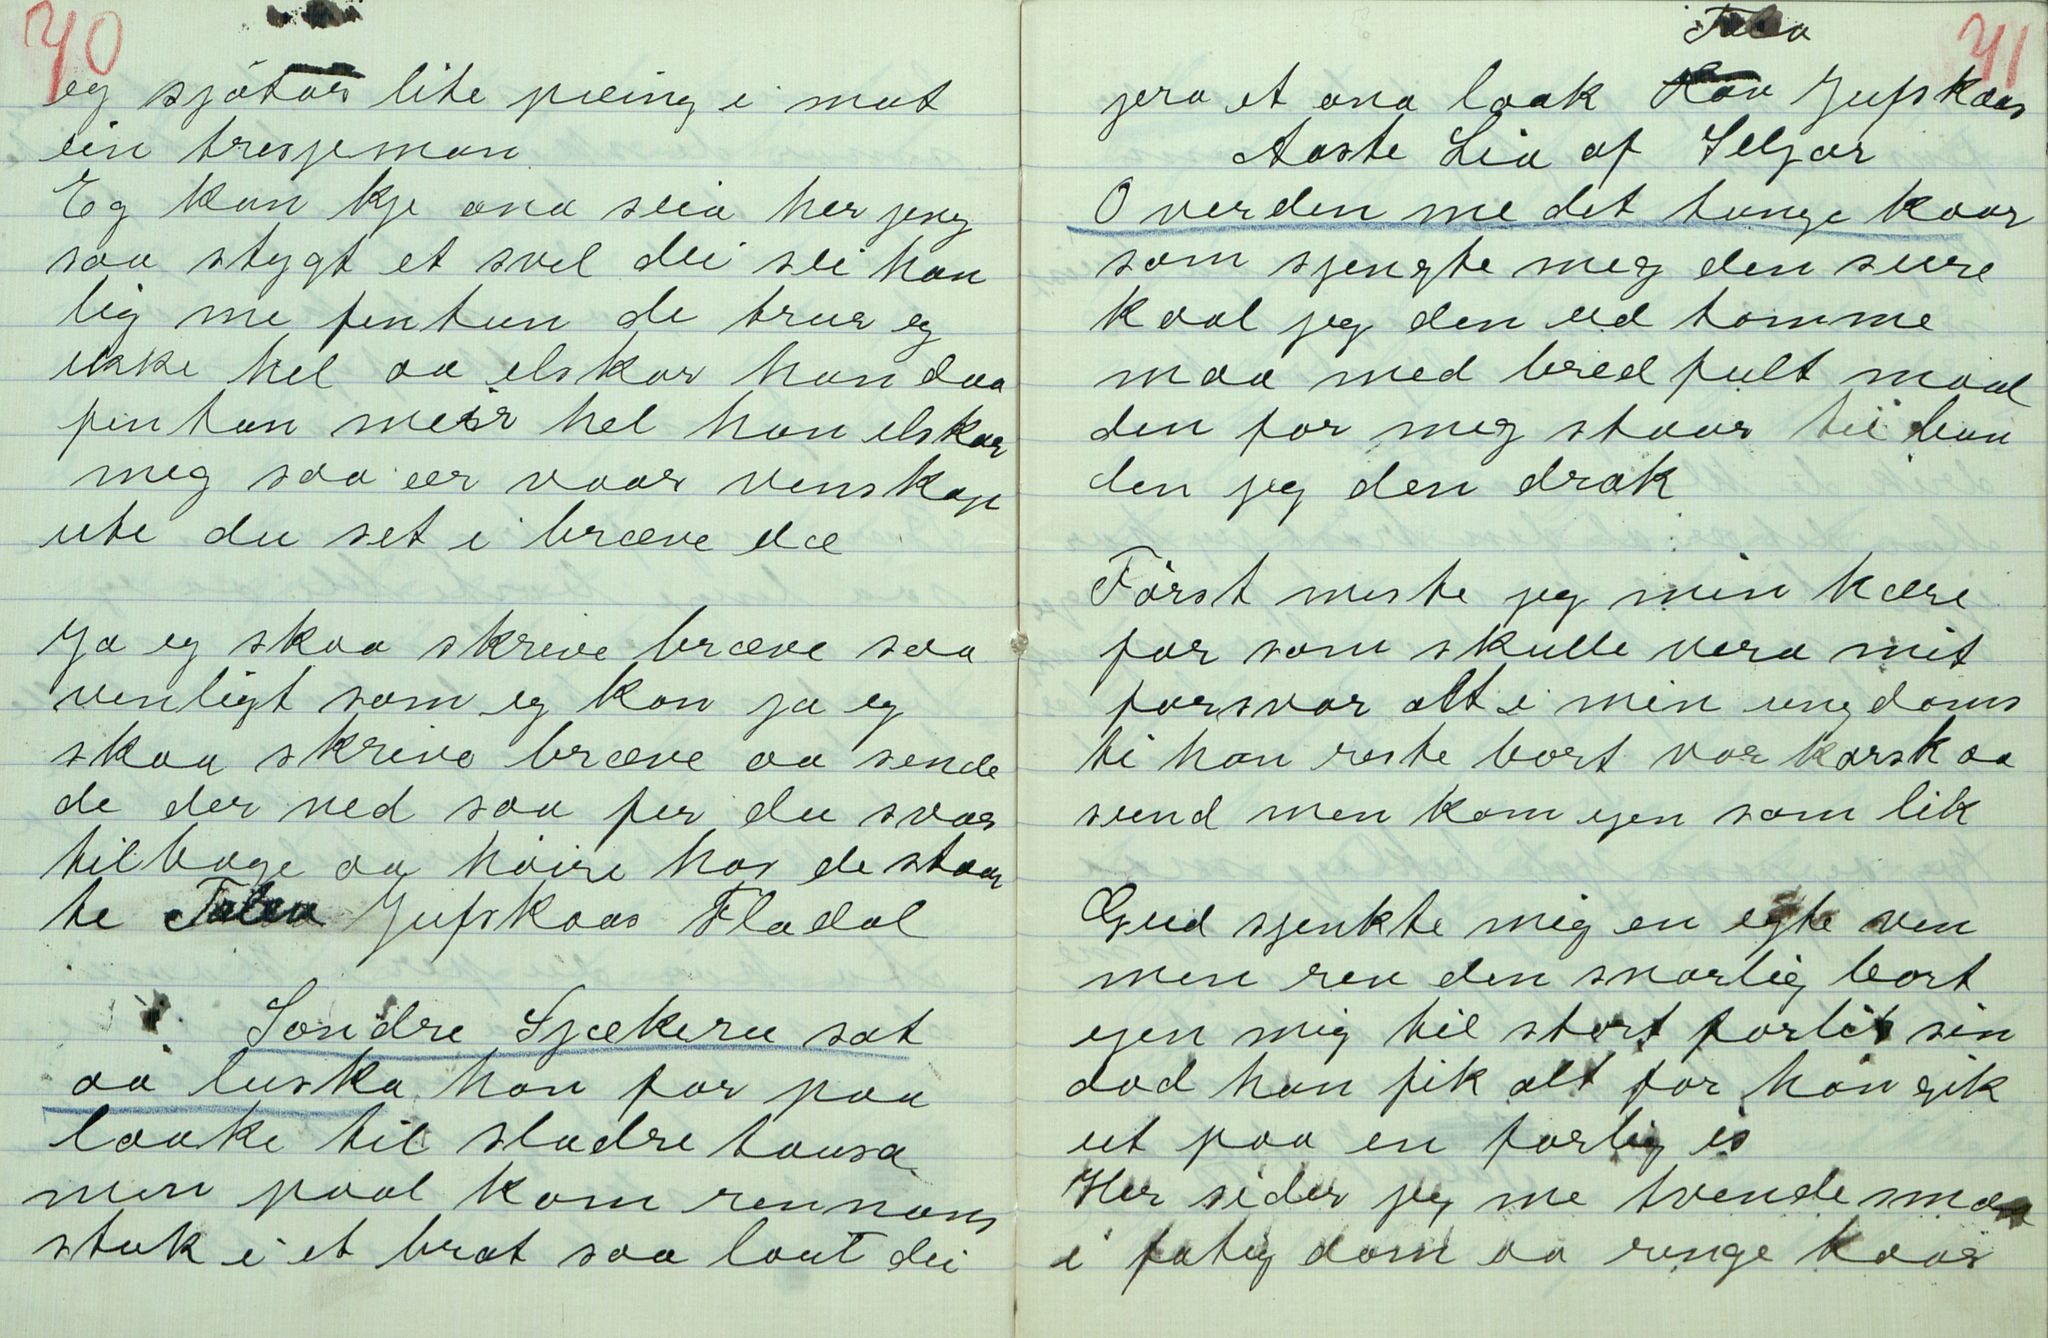 40
eg sjøtar lite pæing i mot
ein tresjeman
Eg kan kje ana seia her jeg
saa stygt et svel dei sei han
lig me fentun de trur eg
ikke hel aa elskar han daa
fentun meir hel han elskar
meg saa er vaar venskap
ute du set i bræve da
Ja eg skaa skrive bræve saa
venligt som eg kan ja eg
skaa skrive bræve aa sende
de der ned saa fer du svar
tilbage aa høire hos de staar
te Talea Jufskaas Fladal
Sondre Sjækeru sat
aa luska han for paa
laake til sladre tausa
men paal kom rennans
stak i et brot saa laut dei
41
Talea
jera et ana laak Jufskaas
Aaste Lia af Seljor
O verden me det tunge kaar
som sjengte meg den sure
kaal jeg den ud tømme
maa med bred fult maal
den for meg staar til bun
den jeg den drak
Først miste jeg min kære
far som skulle vera mit
forsvar alt i min ungdoms
ti han reste bort var karsk aa
sund men kom igen som lik
Gud sjenkte mig en egte ven
men rev den snarlig bort
igen mig til stort forlis sin
død han fik alt for han gik
ut paa en farlig is
Her sider jeg me tvende smaa
i fatig dom aa ringe kaar